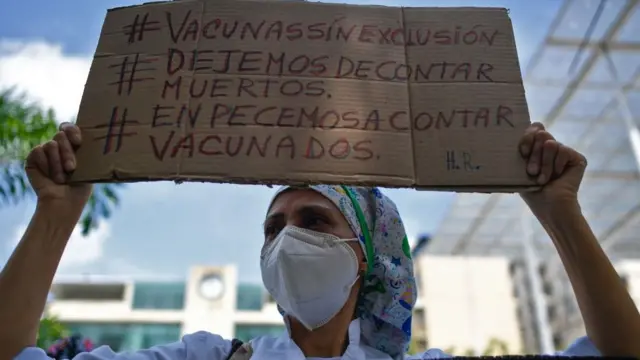 #VACUNASSÍNEXCLUSIÓN
#DEJEMOS DE CONTAR
MUERTOS.
#EN PECEMOS A CONTAR
VACUNADOS.
H.R.